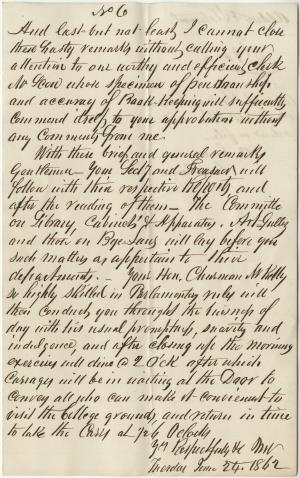 No 6
And last but not least, I cannot close
these hasty remarks without calling your
attention to our worthy and efficient Clerk
Mr whose specimen of penmanship
and accuracy of Book Keeping will sufficiently
commend itself to your approbation without
any Comments from me.
With these brief and general remarks
Gentlemen – Your Secty and Treasurer will
follow with their respective Reports and
after the reading of them – The Committee
on Library, Cabinet & Apparatus, Art Gallery
and those on Bye-Laws will lay before you
such matters as appertain to their
departments. – Your Hon. Chairman Mr
so highly skilled in Parlamentry rules will
then conduct you through the business of
day with his usual promptness, suavity and
indulgence, and after closing up the morning
exercises will dine @ 2 O'ck after which
Carriages will be in waiting at the Door to
convey all who can make it convenient to
visit the College grounds, and return in time
to take the Cars at O'clock
Respectfully &c
Tuesday June 24, 1862